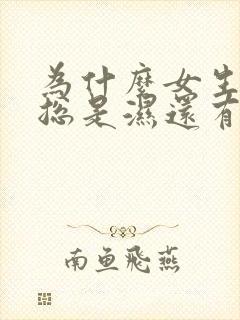 為什麼女生
總是濕還有
南鱼飛燕